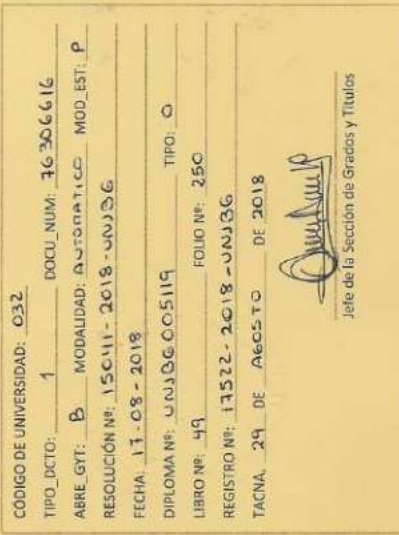 CÓDIGO DE UNIVERSIDAD: 032
TIPO_DCTO: 1 DOCU_NUM: 76306616
ABRE_GYT: B MODALIDAD: AUTOMATICO MOD_EST: P
RESOLUCIÓN Nº: 15041-2018-UNJBG
FECHA: 17-08-2018
DIPLOMA Nº: UNJBG005119 TIPO: O
LIBRO Nº: 49 FOLIO Nº: 250
REGISTRO Nº: 17522-2018-UNJBG
TACNA, 29 DE AGOSTO DE 2018
Jefe de la Sección de Grados y Títulos